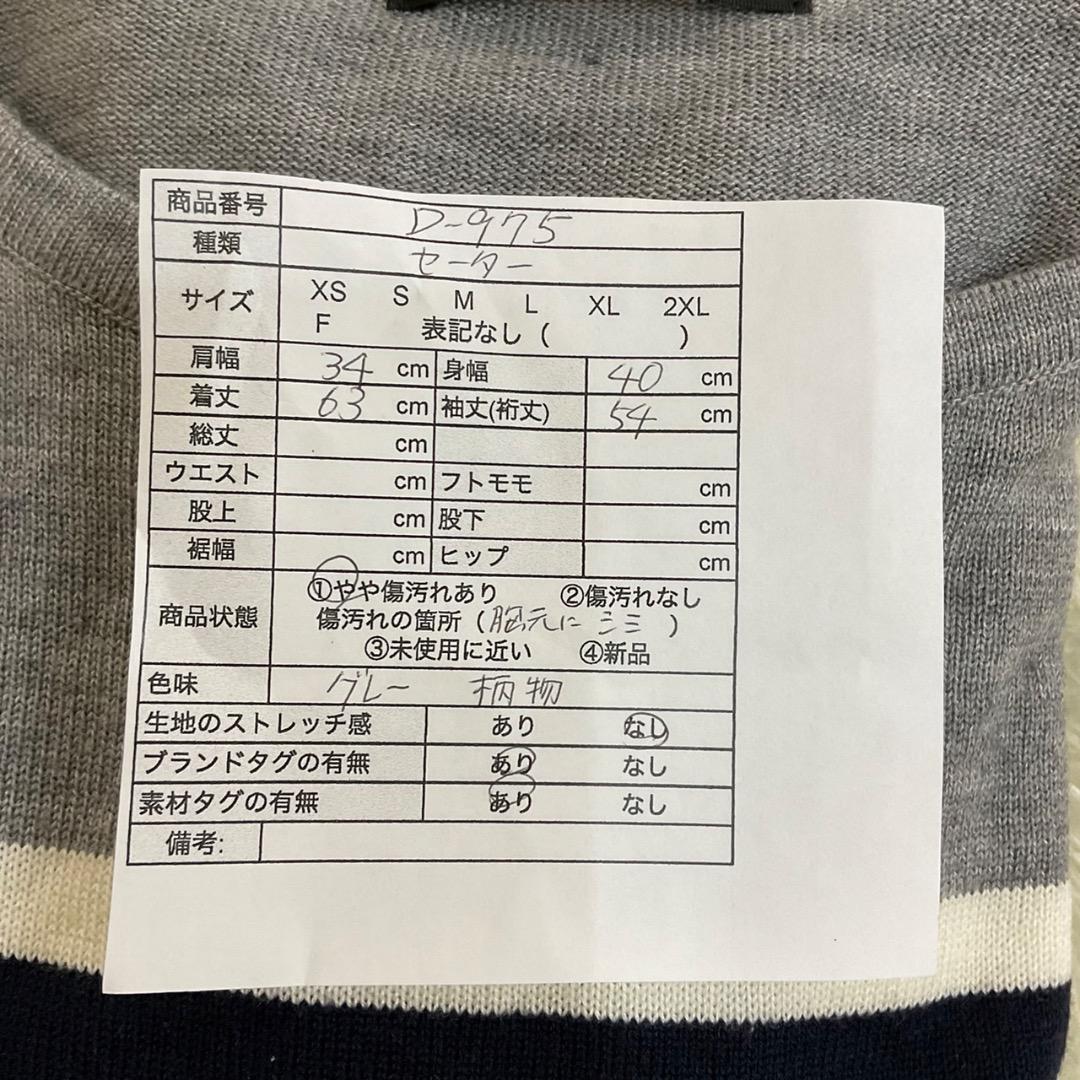 商品番号 D-975
種類 セーター
サイズ XS S M L XL 2XL
F 表記なし ( )
肩幅 34 cm 身幅 40 cm
着丈 63 cm 袖丈(裄丈) 54 cm
総丈 cm
ウエスト cm フトモモ cm
股上 cm 股下 cm
裾幅 cm ヒップ cm
商品状態 ①やや傷汚れあり ②傷汚れなし
傷汚れの箇所 (胸元に シミ )
③未使用に近い ④新品
色味 グレー 柄物
生地のストレッチ感 あり なし
ブランドタグの有無 あり なし
素材タグの有無 あり なし
備考: